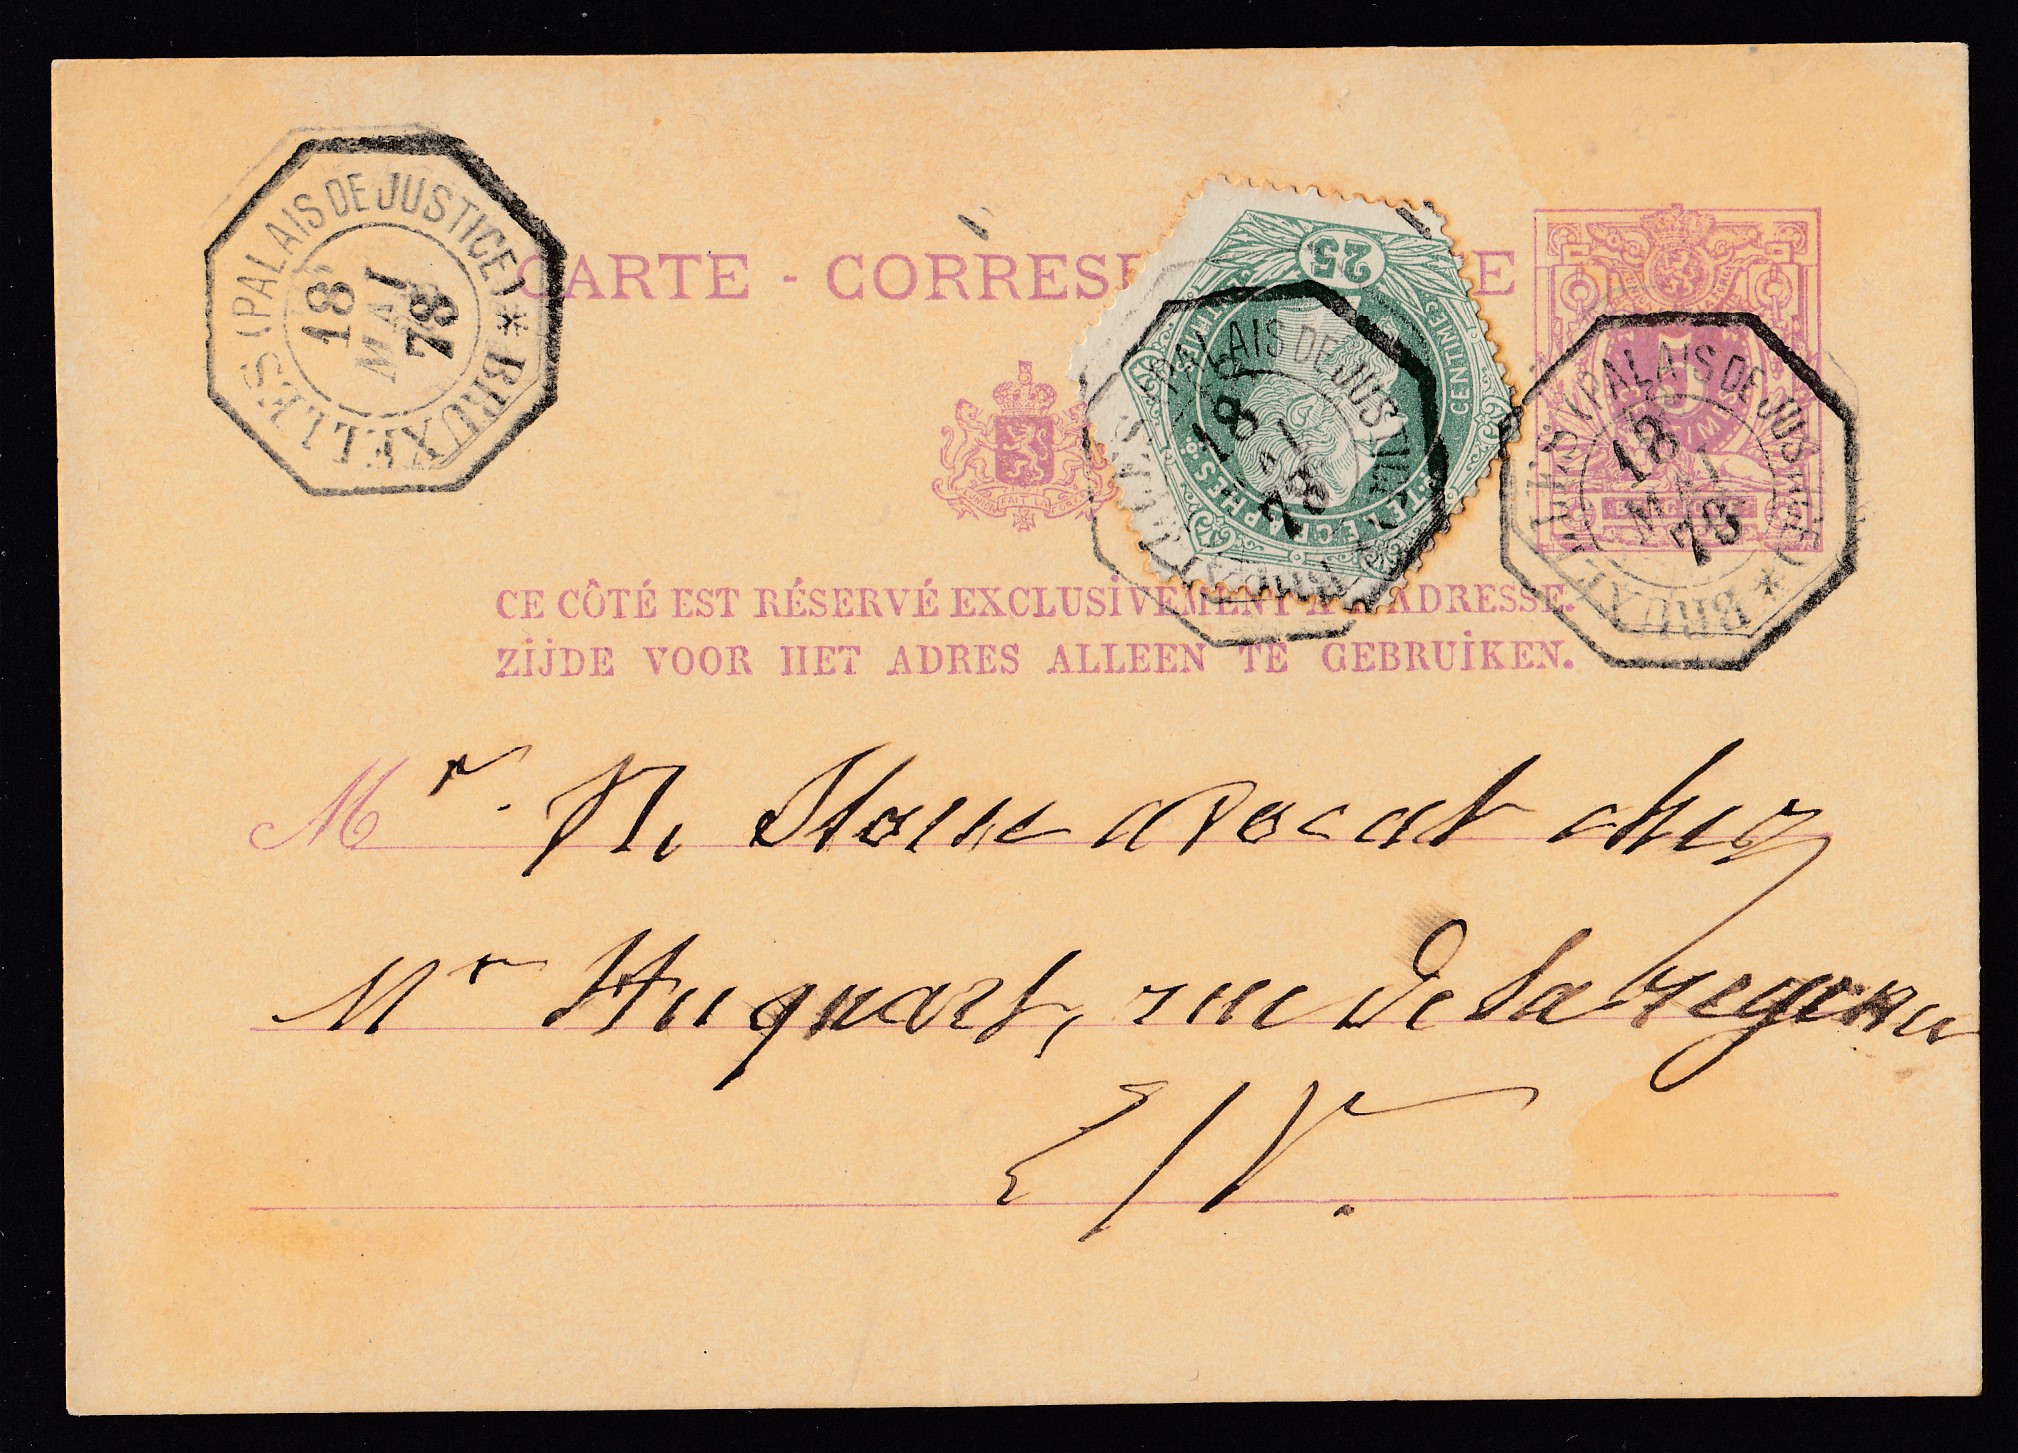 BRUXELLES (PALAIS DE JUSTICE) *
18
MAI
78
CARTE - CORRES E
25
CENTIMES
TÉLÉGRAPHES
BRUXELLES (PALAIS DE JUSTICE)
18
78
5
BRUXELLES (PALAIS DE JUSTICE) *
18
MAI
78
CE CÔTÉ EST RÉSERVÉ EXCLUSIVEMENT A L'ADRESSE.
ZIJDE VOOR HET ADRES ALLEEN TE GEBRUIKEN.
Mr. avocat chez
Mr Huquart, rue de la regence
E/V.